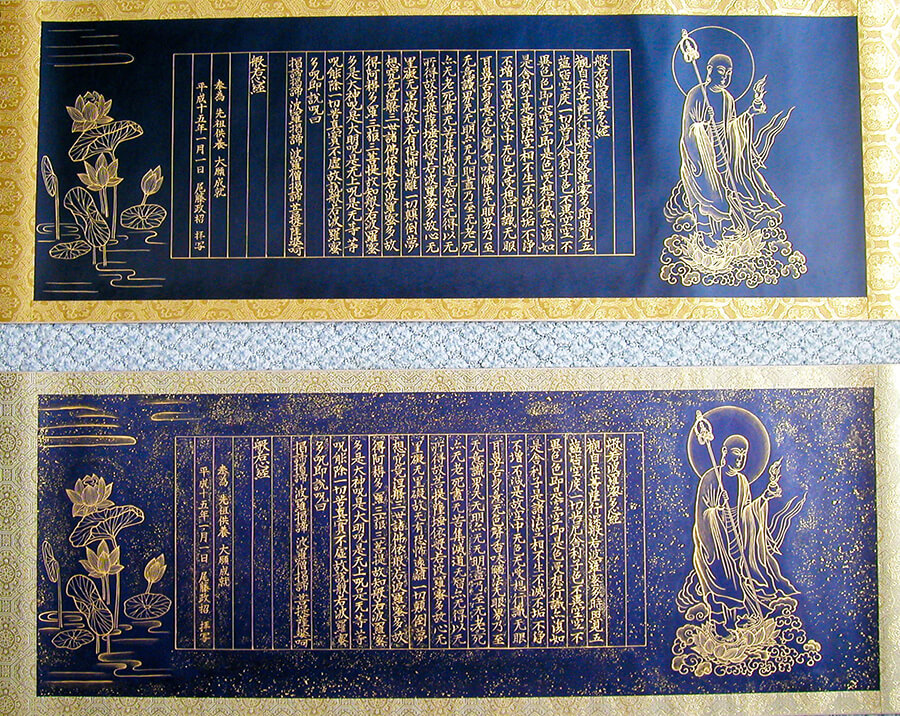 般若波羅蜜多心経
觀自在菩薩行深般若波羅蜜多時照見五
蘊皆空度一切苦厄舎利子色不異空空不
異色色即是空空即是色受想行識亦復如
是舎利子是諸法空相不生不滅不垢不浄
不増不減是故空中无色无受想行識无眼
耳鼻舌身意无色声香味触法无眼界乃至
无意識界无无明亦无无明盡乃至无老死
亦无老死盡无苦集滅道无智亦无得以无
所得故菩提薩埵依般若波羅蜜多故心无
罣礙无罣礙故无有恐怖遠離一切顛倒夢
想究竟涅槃三世諸佛依般若波羅蜜多故
得阿耨多羅三藐三菩提故知般若波羅蜜
多是大神呪是大明呪是无上呪是无等等
呪能除一切苦真実不虚故説般若波羅蜜
多呪即説呪曰
掲諦掲諦 波羅掲諦 波羅僧掲諦 菩提薩婆訶
般若心経
奉為 先祖供養 大願成就
平成十五年一月一日 尾藤政招 拝写
般若波羅蜜多心経
觀自在菩薩行深般若波羅蜜多時照見五
蘊皆空度一切苦厄舎利子色不異空空不
異色色即是空空即是色受想行識亦復如
是舎利子是諸法空相不生不滅不垢不浄
不増不減是故空中无色无受想行識无眼
耳鼻舌身意无色声香味触法无眼界乃至
无意識界无无明亦无无明盡乃至无老死
亦无老死盡无苦集滅道无智亦无得以无
所得故菩提薩埵依般若波羅蜜多故心无
罣礙无罣礙故无有恐怖遠離一切顛倒夢
想究竟涅槃三世諸佛依般若波羅蜜多故
得阿耨多羅三藐三菩提故知般若波羅蜜
多是大神呪是大明呪是无上呪是无等等
呪能除一切苦真実不虚故説般若波羅蜜
多呪即説呪曰
掲諦掲諦 波羅掲諦 波羅僧掲諦 菩提薩婆訶
般若心経
奉為 先祖供養 大願成就
平成十五年一月一日 尾藤政招 拝写